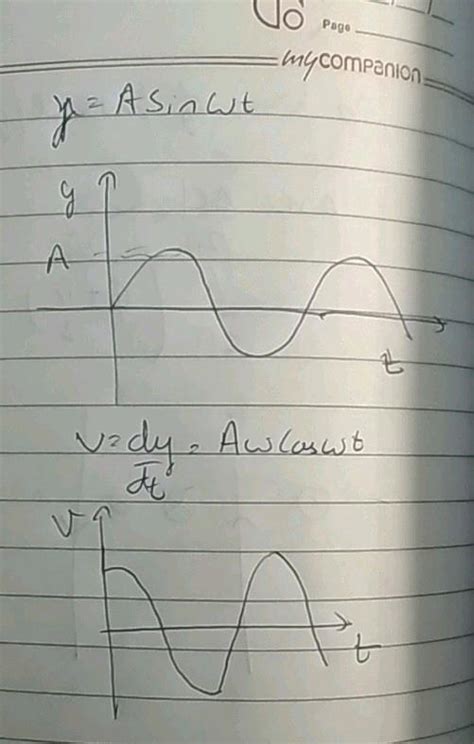 Page
mycompanion
y = A Sin ωt
y
A
t
v = dy/dt = Aω Cos ωt
v
t